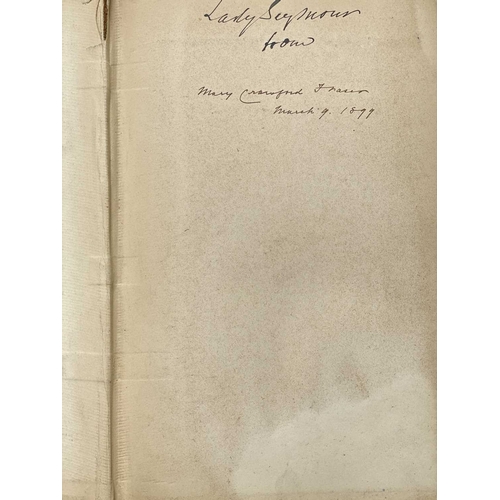 Lady Seymour
from
Mary Crawford Fraser
March 9. 1899